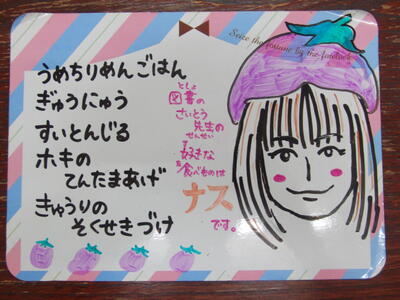 うめちりめんごはん
ぎゅうにゅう
すいとんじる
ホキの
てんたまあげ
きゅうりの
そくせきづけ
としょ
図書の
さいとう
先生の
せんせい
す
好きな
た
食べものは
ナス
です。
Seize the fortune by the forelock